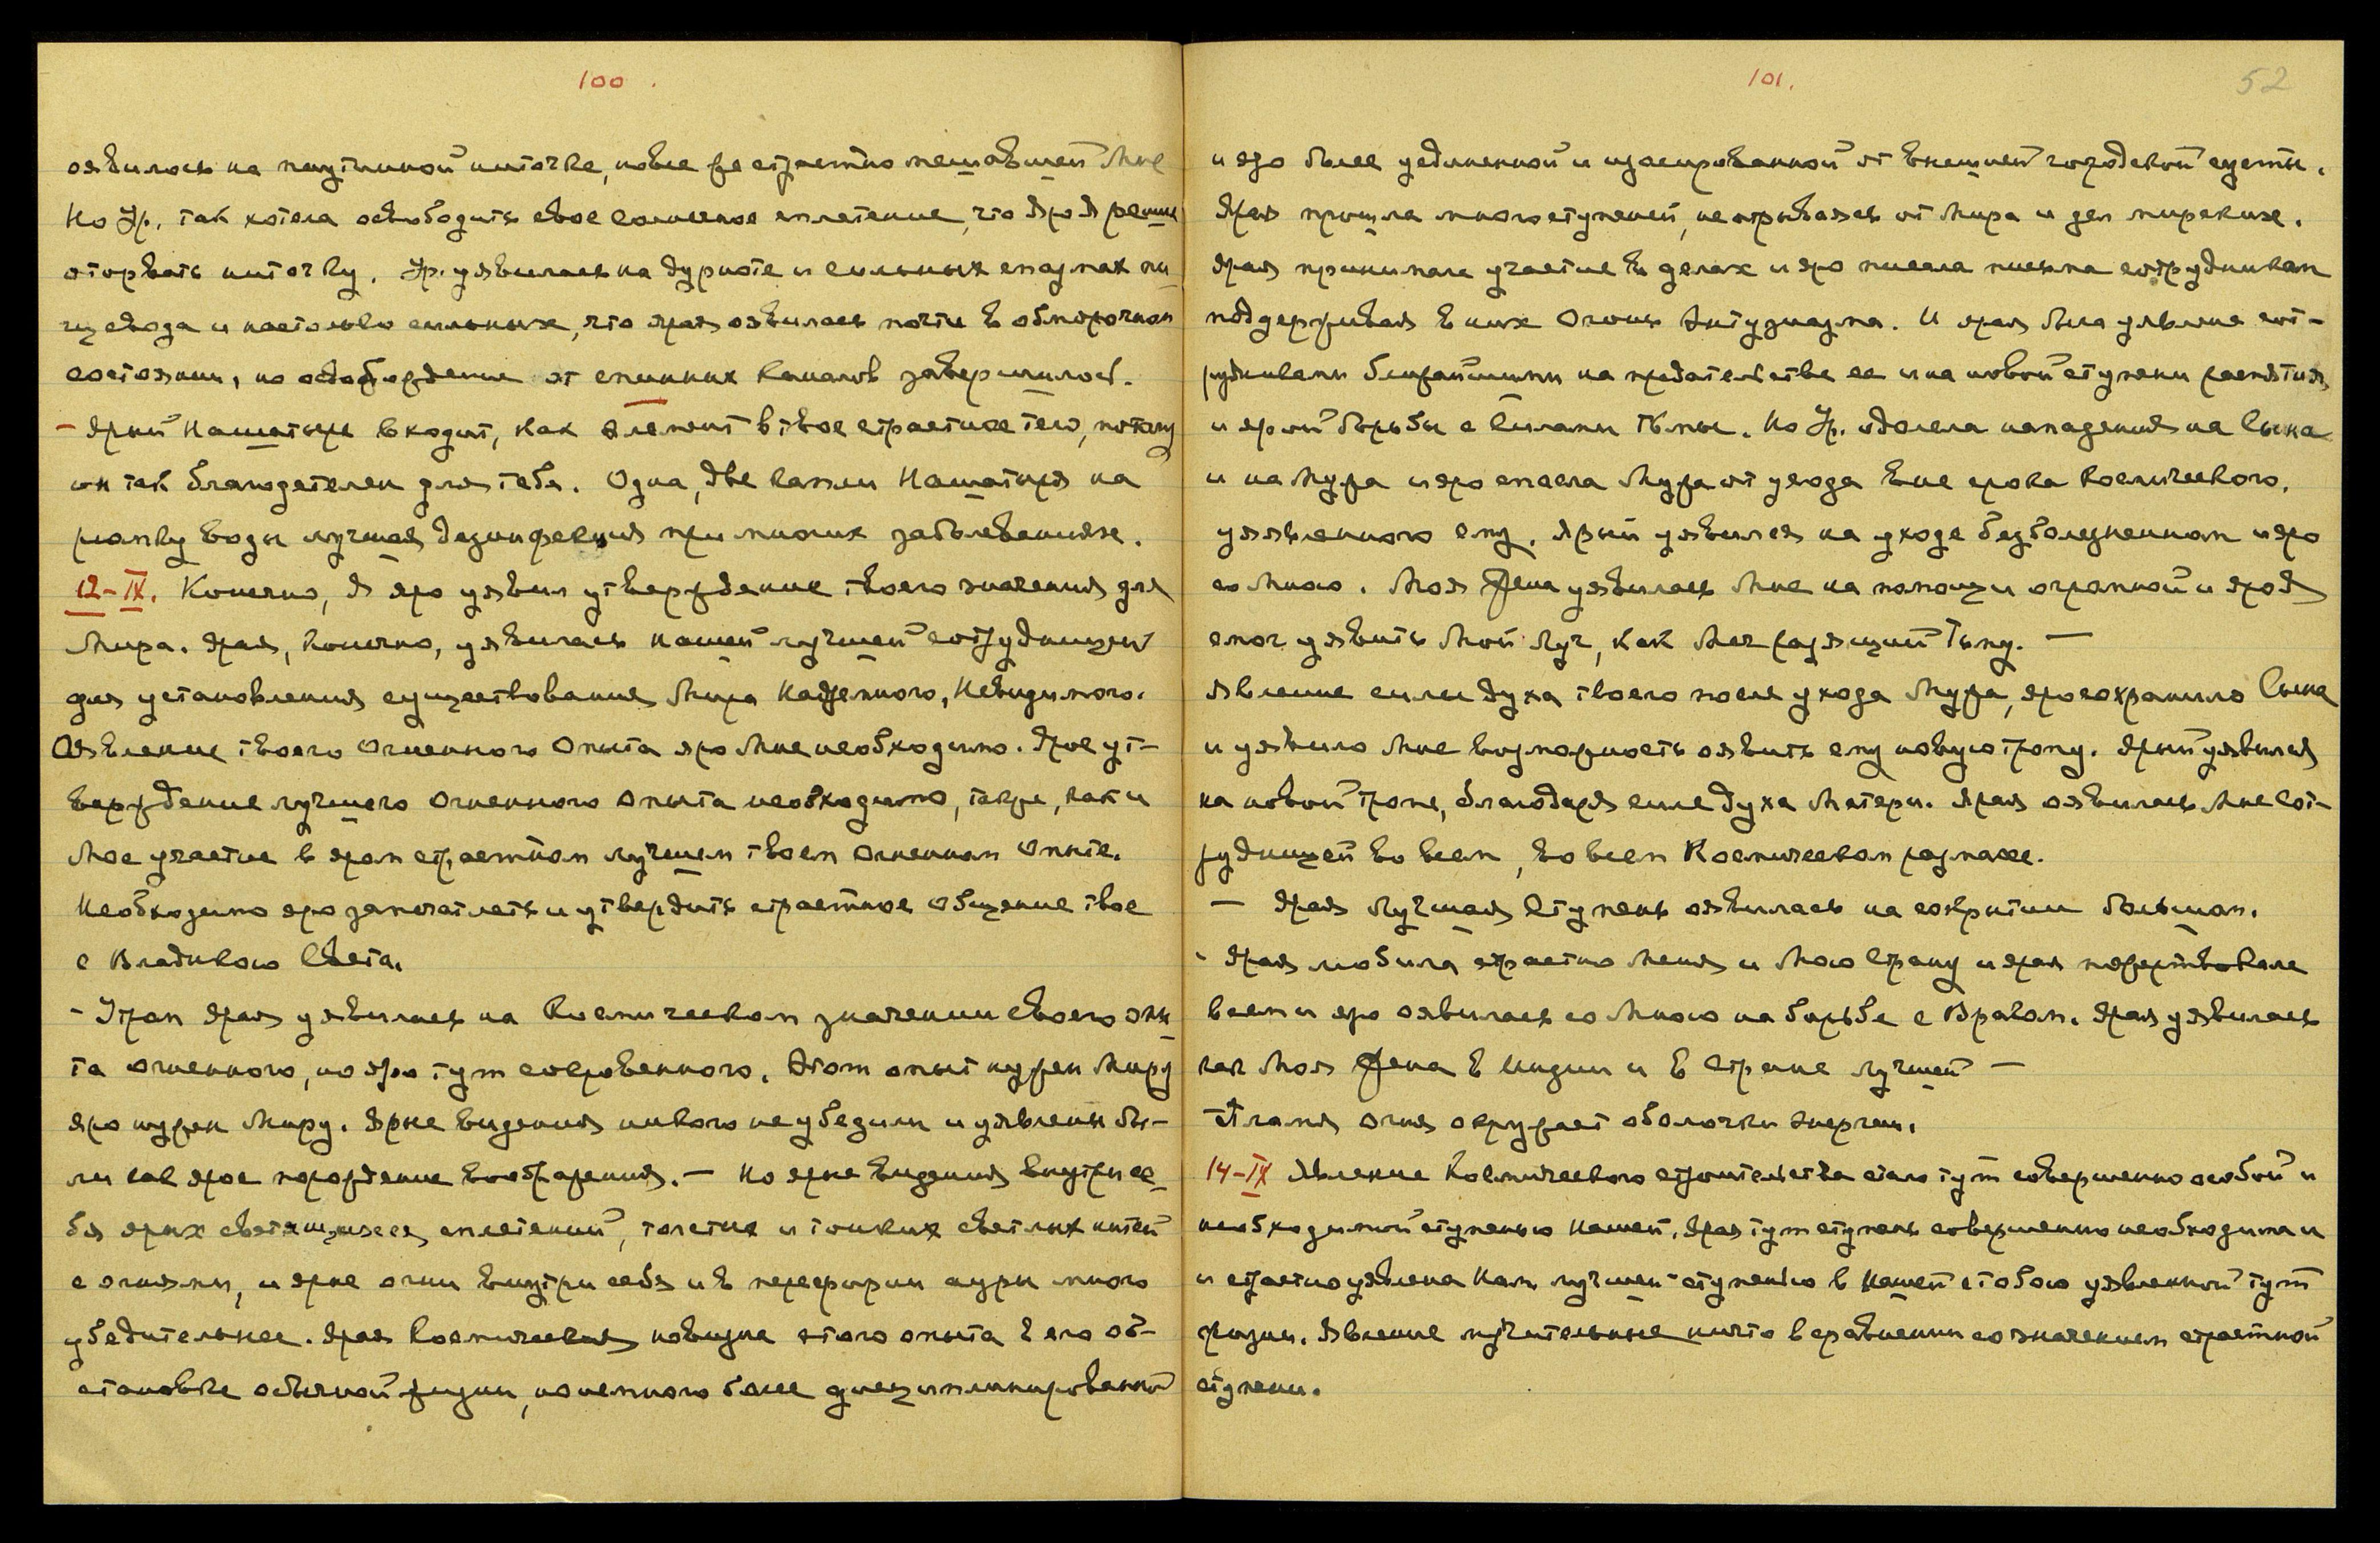 100.
оявилось на паутинной ниточке, новсе же страстно мешавшей Мне
Но Ур. так хотела освободить свое солнечное сплетение, что яро Я решил
оторвать ниточку. Ур. уявилась на дурноте и сильных спазмах пи
щевода и настолько сильных, что ярая оявилась почти в обморочном
состоянии, но освобождение от спинных каналов завершилось.
- Ярый Нашатырь входит, как элемент в твое страстное тело, потому
он так благодетелен для тебя. Одна, две капли Нашатыря на
рюмку воды лучшая дезинфекция при многих заболеваниях.
12-IX. Конечно, Я яро уявил утверждение твоего значения для
Мира. Ярая, конечно, уявилась нашей лучшей сотрудницей
для установления существования Мира Надземного, Невидимого.
Оявление твоего Огненного Опыта яро Мне необходимо. Ярое ут-
верждение лучшего Огненного Опыта необходимо, также, как и
Мое участие в яром страстном лучшем твоем Огненном Опыте.
Необходимо яро запечатлеть и утвердить страстное общение твое
с Владыкою Света.
- Утром ярая уявилась на Космическом значении своего опы
та огненного, но яро тут сокровенного. Этот опыт нужен Миру
яро нужен Миру. Ярые видения никого не убедили и уявлены бы-
ли как ярое порождение воображения. — Но ярые видения внутри се
бя ярых светящихся сплетений, толстых и тонких светлых нитей
с огнями, и ярые огни внутри себя и в периферии ауры много
убедительнее. Ярая Космическая новизна этого опыта в его об-
становке обычной жизни, но немного более дисциплинированной
101.
52
и яро более уединенной и изолированной от внешней городской суеты.
Ярая прошла много ступеней, не отрываясь от Мира и дел мирских.
Ярая принимала участие в делах и яро писала письма сотрудникам
поддерживая в них Огонь Энтузиазма. И ярая была уявлена сот-
рудниками ближайшими на предательстве ее и на новой ступени распятия
и ярой борьбы с Силами Тьмы. Но Ур. одолела нападения на Сына
и на Мужа и яро спасла Мужа от ухода вне срока Космического,
уявленного ему. Ярый уявился на уходе безболезненном и яро
со Мною. Моя Жена уявилась Мне на помощи огромной и яро Я
смог уявить Мой Луч, как Меч разящий Тьму. —
Явление силы духа твоего после ухода Мужа, яро сохранило Сына
и уявило Мне возможность оявить ему новую тропу. Ярый уявился
на новой тропе, благодаря силе духа Матери. Ярая оявилась Мне Сот-
рудницей во всем, во всем Космическом размахе.
— Ярая Лучшая Ступень оявилась на сокрытии большом.
- Ярая любила страстно Меня и Мою Страну и ярая пожертвовала
всем и яро оявилась со Мною на борьбе с Врагом. Ярая уявилась
как Моя Жена в Индии и в Стране лучшей —
- Пламя огня окружает оболочки энергии.
14-IX Явление Космического строительства стало тут совершенно особой и
необходимой ступенью нашей. Ярая тут ступень совершенно необходима и
и страстно уявлена Нам лучшей ступенью в нашей с тобою уявленной тут
жизни. Явление мучительные ничто в сравнении со значением страстной
ступени.